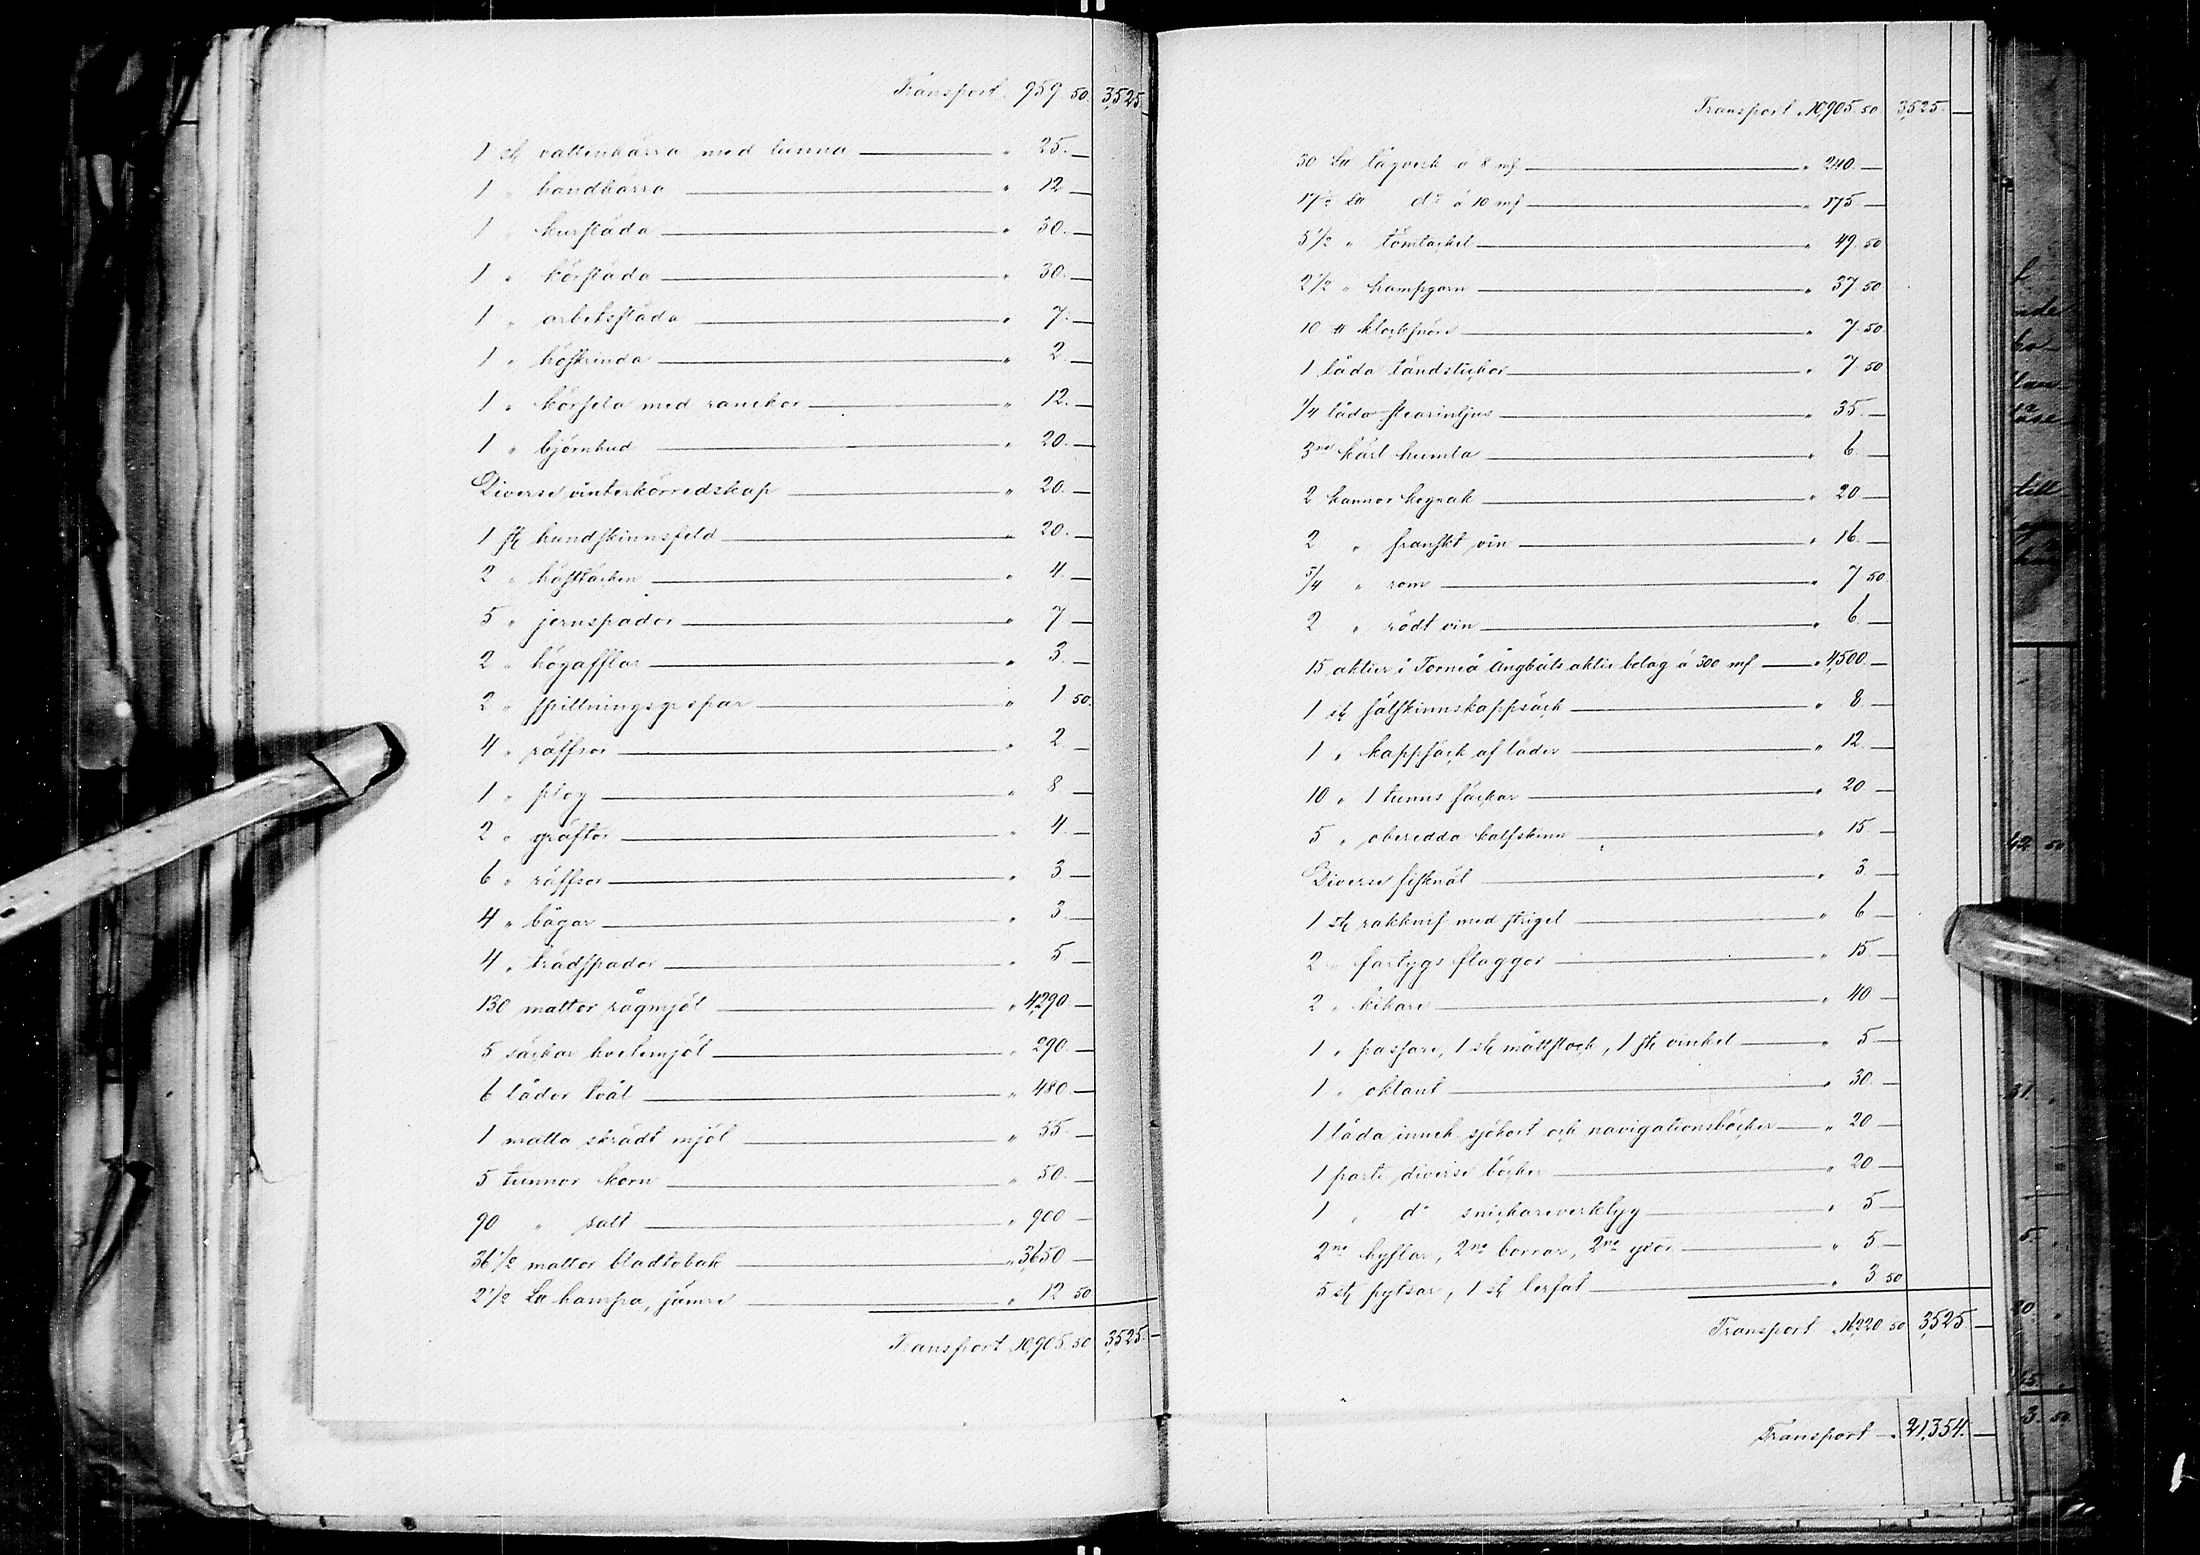 Transport „ 959. 50. 3,525.
1 st vattenkärra med tunna — „ 25. —
1 „ handkärra — „ 12 —
1 „ kursläda — „ 50. —
1 „ körsläda — „ 30. —
1 „ arbetssläda — „ 7. —
1 „ höskrinda — „ 2. —
1 „ körsela med ranckor — „ 12. —
1 „ björnhud — „ 20. —
Diverse vinterkörredskap — „ 20. —
1 st hundskinnsfeld — „ 20. —
2 „ hästtäcken — „ 4. —
5 „ jernspador — „ 7 —
2 „ högafflar — „ 3. —
2 „ spillningsgrepar — „ 1 50.
4 „ räfsor — „ 2. —
1 „ plog — „ 8 —
2 „ gräftor — „ 4. —
6 „ räfsor — „ 3. —
4 „ bågar — „ 3. —
4 „ trädspador — „ 5 —
130 mattor rågmjöl — „ 4,290. —
5 säckar hvetemjöl — „ 290. —
6 lådor tvål — „ 480. —
1 matta skrädt mjöl — „ 55. —
5 tunnor korn — „ 50. —
90 „ salt — „ 900 —
36 1/2 mattor bladtobak — „ 3,650 —
2 1/2 Lu hampa, sämre — „ 12 50
Transport „ 10,905. 50 3,525. —
Transport „ 10,905. 50. 3,525. —
30 Lu tågverk á 8 mf — „ 240. —
17 1/2 Lu do á 10 mf — „ 175 —
5 1/2 „ tömtackel — „ 49. 50
2 1/2 „ hampgarn — „ 37. 50
10 # klocksnöre — „ 7. 50
1 låda tändstickor — „ 7 50
1/4 låda stearinljus — „ 35. —
3ne kärl humla — „ 6. —
2 kannor kognak — „ 20 —
2 „ franskt vin — „ 16. —
5/4 „ rom — „ 7 50.
2 „ rödt vin — „ 6. —
15 aktier i Torneå Ångbåts aktie bolag á 300 mf — „ 4,500. —
1 st sälskinnskappsäck — „ 8. —
1 „ kappsäck af läder — „ 12. —
10 „ 1 tunns säckar — „ 20 —
5 „ oberedda kalfskinn — „ 15 —
Diverse fisknät — „ 3 —
1 st rakknif med strigel — „ 6 —
2 „ fartygs flaggor — „ 15 —
2 „ kikare — „ 40 —
1 „ passare, 1 st måttstock, 1 st vinkel — „ 5 —
1 „ oktant — „ 30. —
1 låda inneh. sjökort och navigationsböcker — „ 20 —
1 parti diverse böcker — „ 20 —
1 „ do snickareverktyg — „ 5 —
2ne hyflar, 2ne borrar, 2ne yxor — „ 5. —
5 st pytsar, 1 st lerfat — „ 3 50
Transport „ 16,220. 50 3,525. —
Transport — „ 21,354. —